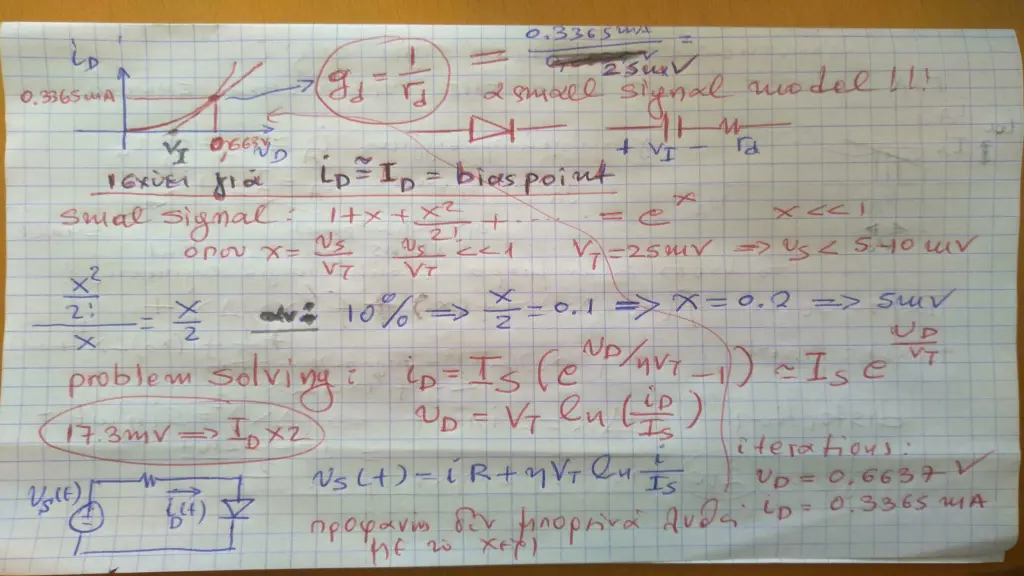 i_D
0.3365mA
V_I 0.6637 V_D
g_d = 1/r_d = 0.3365mA / 25mV =
2 small signal model !!!
+ V_I - r_d
ισχύει για i_D ≈ I_D = bias point
smal signal: 1+x+x²/2!+... = e^x x<<1
οπου x = v_s/V_T v_s/V_T <<1 V_T=25mV ⇒ v_s < 5-10mV
(x²/2!)/x = x/2 10% ⇒ x/2 = 0.1 ⇒ x = 0.2 ⇒ 5mV
problem solving: i_D = I_S (e^(v_D/ηV_T) -1) ≈ I_S e^(v_D/V_T)
v_D = V_T ln (i_D/I_S)
17.3mV ⇒ I_D x2
iterations:
v_D = 0.6637 V
i_D = 0.3365 mA
v_s(t) = iR + ηV_T ln i/I_S
v_s(t) i_D(t)
προφανώς δεν μπορεί να λυθεί
με το χέρι